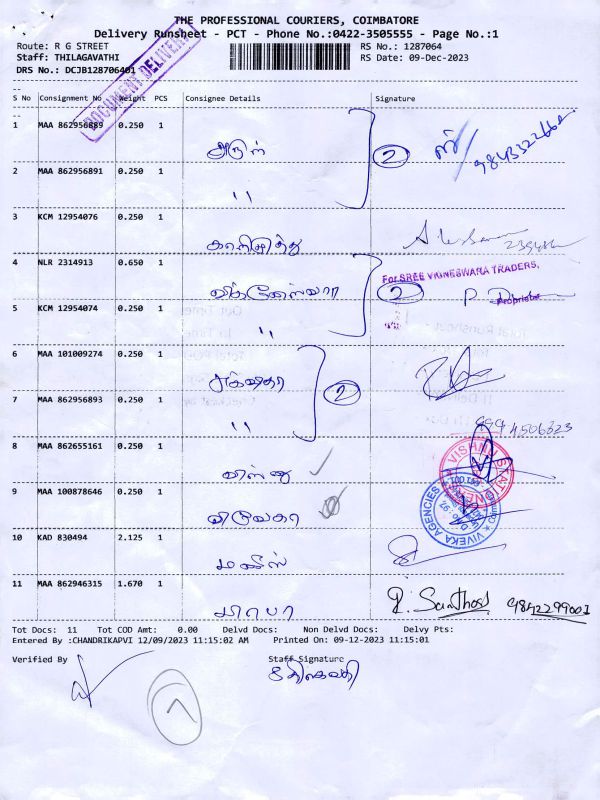 THE PROFESSIONAL COURIERS, COIMBATORE
Delivery Runsheet - PCT - Phone No.:0422-3505555 - Page No.:1
Route: R G STREET RS No.: 1287064
Staff: THILAGAVATHI RS Date: 09-Dec-2023
DRS No.: DCJB128706401
DOCUMENT DELIVERY
S No Consignment No Weight PCS Consignee Details Signature
1 MAA 862956889 0.250 1
அருள் 2 9843322662
2 MAA 862956891 0.250 1
"
3 KCM 12954076 0.250 1
4 NLR 2314913 0.650 1
For SREE VIGNESWARA TRADERS,
விக்னேஸ்வரா 2 P. Proprietor
5 KCM 12954074 0.250 1
"
6 MAA 101009274 0.250 1
2
7 MAA 862956893 0.250 1
" 9994506323
8 MAA 862655161 0.250 1
விஸ்னு VISHNU STATIONE
9 MAA 100878646 0.250 1
VIVEKA AGENCIES
10 KAD 830494 2.125 1
மணீஸ்
11 MAA 862946315 1.670 1
R. Santhosh 9842299001
Tot Docs: 11 Tot COD Amt: 0.00 Delvd Docs: Non Delvd Docs: Delvy Pts:
Entered By :CHANDRIKAPVI 12/09/2023 11:15:02 AM Printed On: 09-12-2023 11:15:01
Verified By Staff Signature